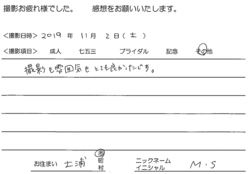 撮影お疲れ様でした。 感想をお願いいたします。
<撮影日時> 2019 年 11 月 2 日 ( 土 )
<撮影項目> 成人 七五三 ブライダル 記念 その他
撮影も雰囲気もとても良かったです。
お住まい 土浦 市 町 村 ニックネーム イニシャル M・S